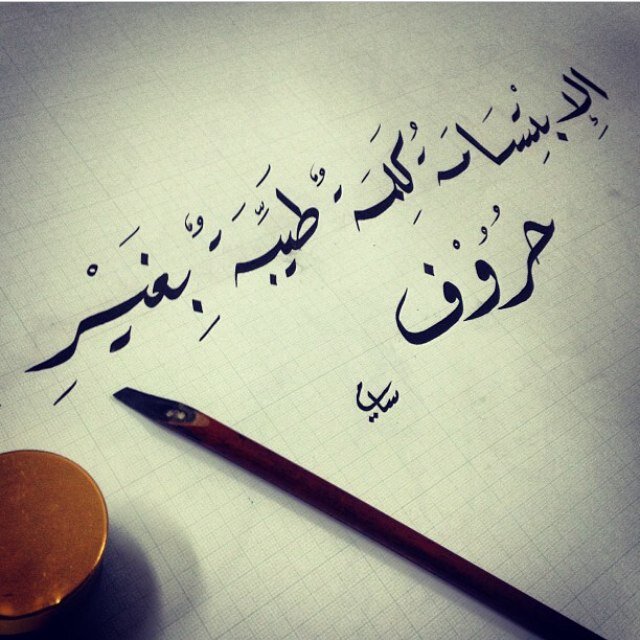 الإبْتِسَامَة كُلِمَة طُيِّبَة بُغَيْرِ
حُرُوُفْ